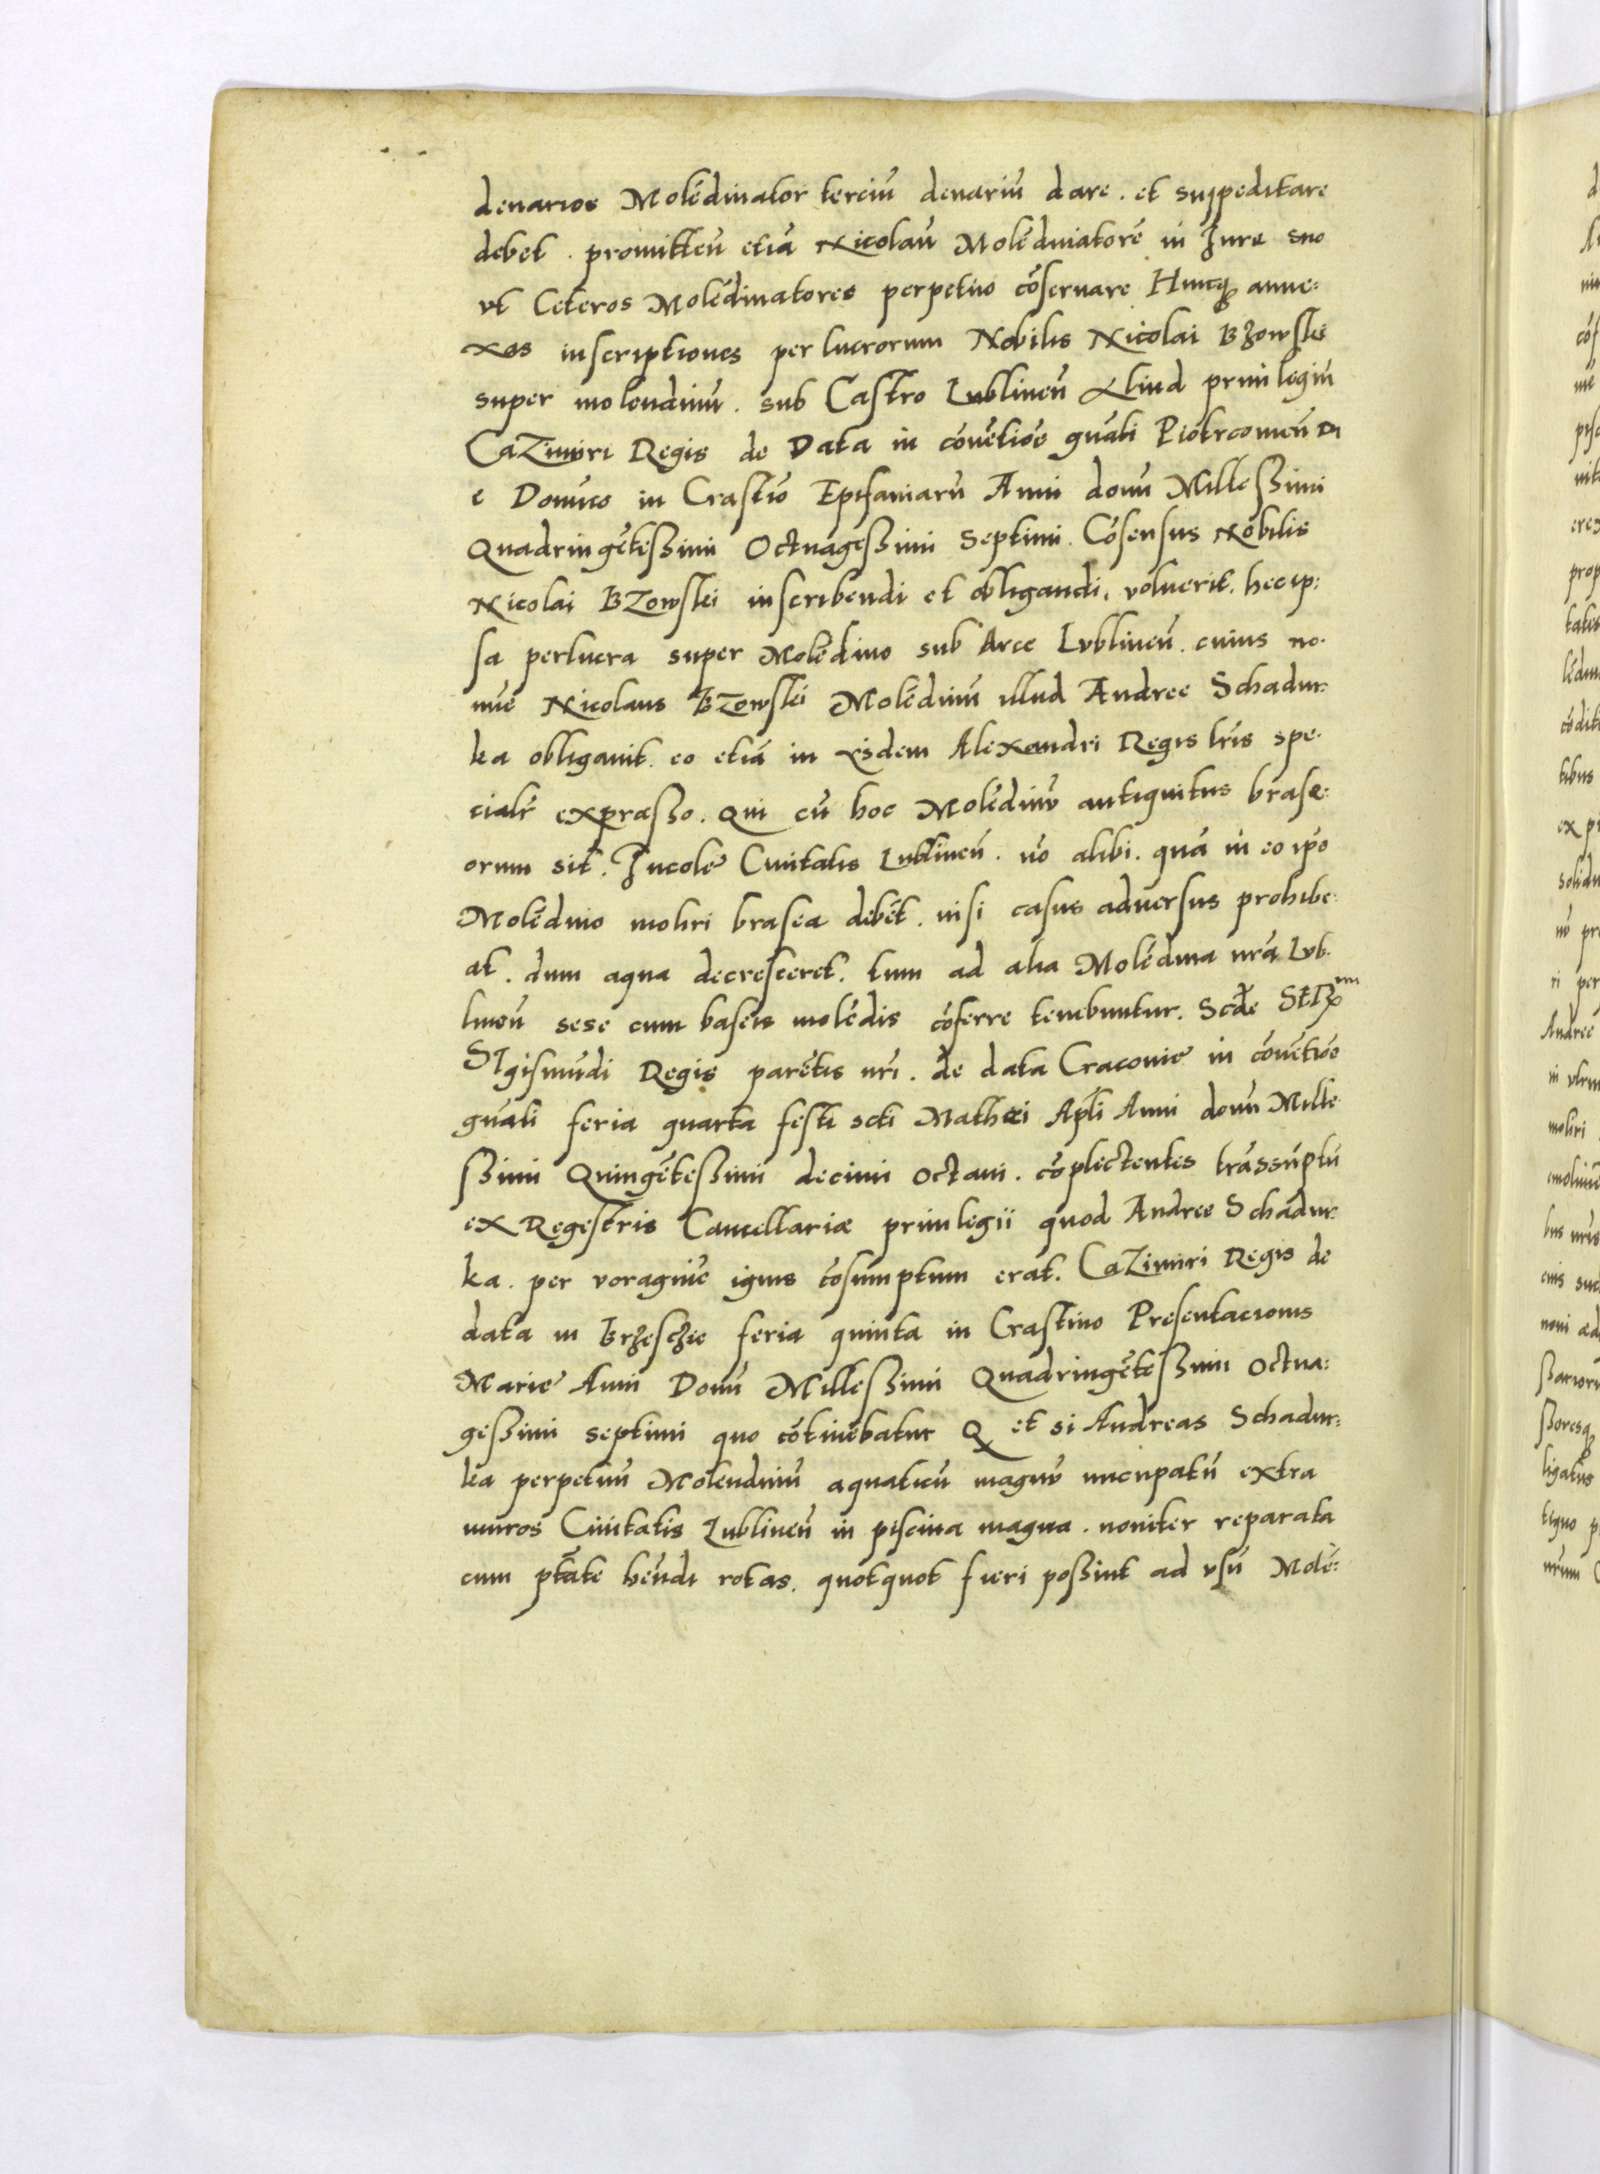 denarios Molēdinator terciū denariū dare. et suppeditare
debet. promitteñ etiā Nicolaū Molēdinatorē in Jure suo
vt Ceteros Molēdinatores perpetuo cōseruare Huicq3 anne:
xas inscriptiones per lucrorum Nobilis Nicolai Bzowski
super molendinū. sub Castro Lublineñ Aliud priuilegiū
Cazimiri Regis de Data in cōuētiōe gñali Piotrcouieñ Di
e Domīco in Crastiō Epifaniarū Anni domī Millessimi
Quadringētessimi Octuagessimi Septimi. Cōsensus Nobilis
Nicolai Bzowski inscribendi et obligandi, voluerit. hec ip:
sa perlucra super Molēdino sub Arce Lublineñ. cuius no.
mīe Nicolaus Bzowski Molēdinū illud Andree Schadur:
ka obligauit. eo etiā in eisdem Alexandri Regis lr̄is spe.
cialr̄ expræsso. Qui cū hoc Molēdinū antiquitus brase:
orum sit. Incole Ciuitatis Lublineñ. nō alibi. quā in eo ip̄o
Molēdino moliri brasea debēt. nisi casus aduersus prohibe.
at. dum aqua decresceret. tum ad alia Molēdina nr̄a Lub.
lineñ sese cum baseis molēdis cōferre tenebuntur. Scđe
Sigismūdi Regis parētis nr̄i. de data Cracouie in cōuētiōe
gñali feria quarta festi scti Mathei Apl̄i Anni domī Mille.
ssimi Quingētessimi decimi octaui. cōplectentes trāssūptū
ex Regestris Cancellariæ priuilegii quod Andree Schadur:
ka. per voraginē ignis cōsumptum erat. Cazimiri Regis de
data in Brzeschie feria quinta in Crastino Presentacionis
Marie Anni Domī Millessimi Quadringētessimi Octua:
gessimi septimi quo cōtinēbatur Q et si Andreas Schadur:
ka perpetuū Molendinū aquaticū magnū nucupatū extra
muros Ciuitatis Lublineñ in piscina magna. nouiter reparata
cum ptāte hēndi rotas. quotquot fieri possint ad vsū Molē: